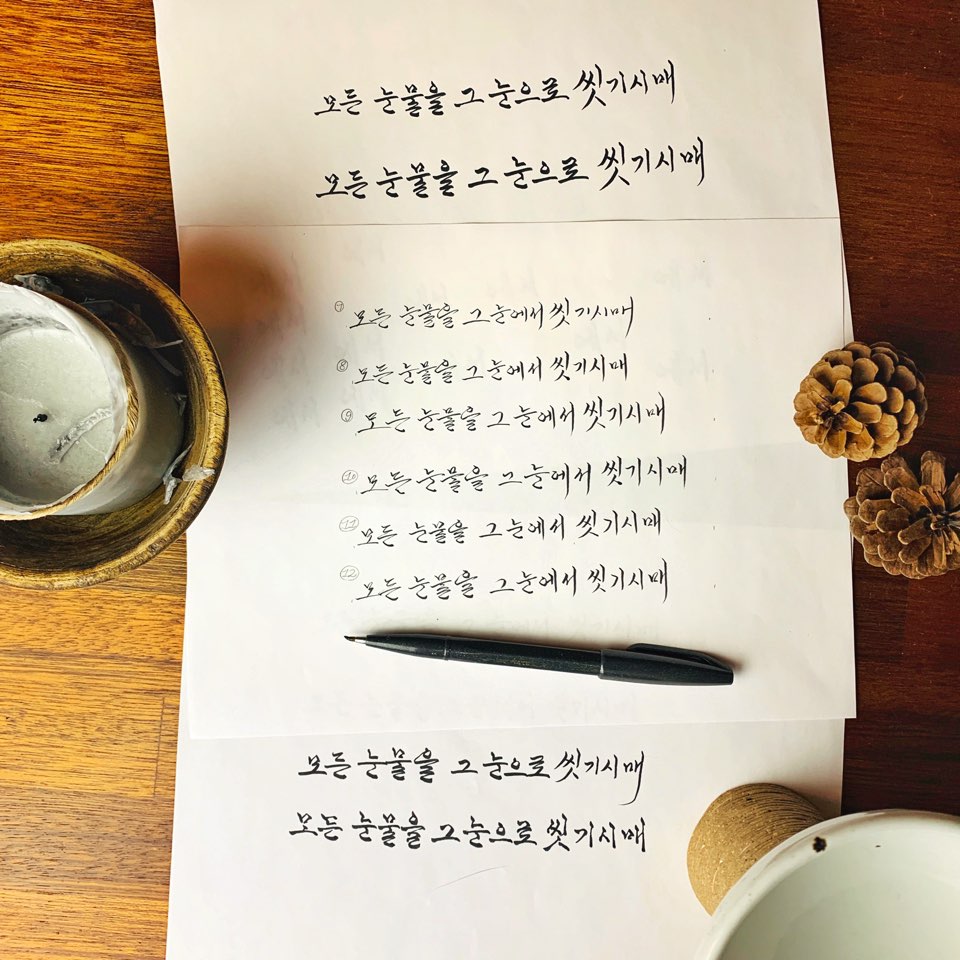 모든 눈물을 그 눈으로 씻기시매
모든 눈물을 그 눈으로 씻기시매
⑦ 모든 눈물을 그 눈에서 씻기시매
⑧ 모든 눈물을 그 눈에서 씻기시매
⑨ 모든 눈물을 그 눈에서 씻기시매
⑩ 모든 눈물을 그 눈에서 씻기시매
⑪ 모든 눈물을 그 눈에서 씻기시매
⑫ 모든 눈물을 그 눈에서 씻기시매
모든 눈물을 그 눈으로 씻기시매
모든 눈물을 그 눈으로 씻기시매